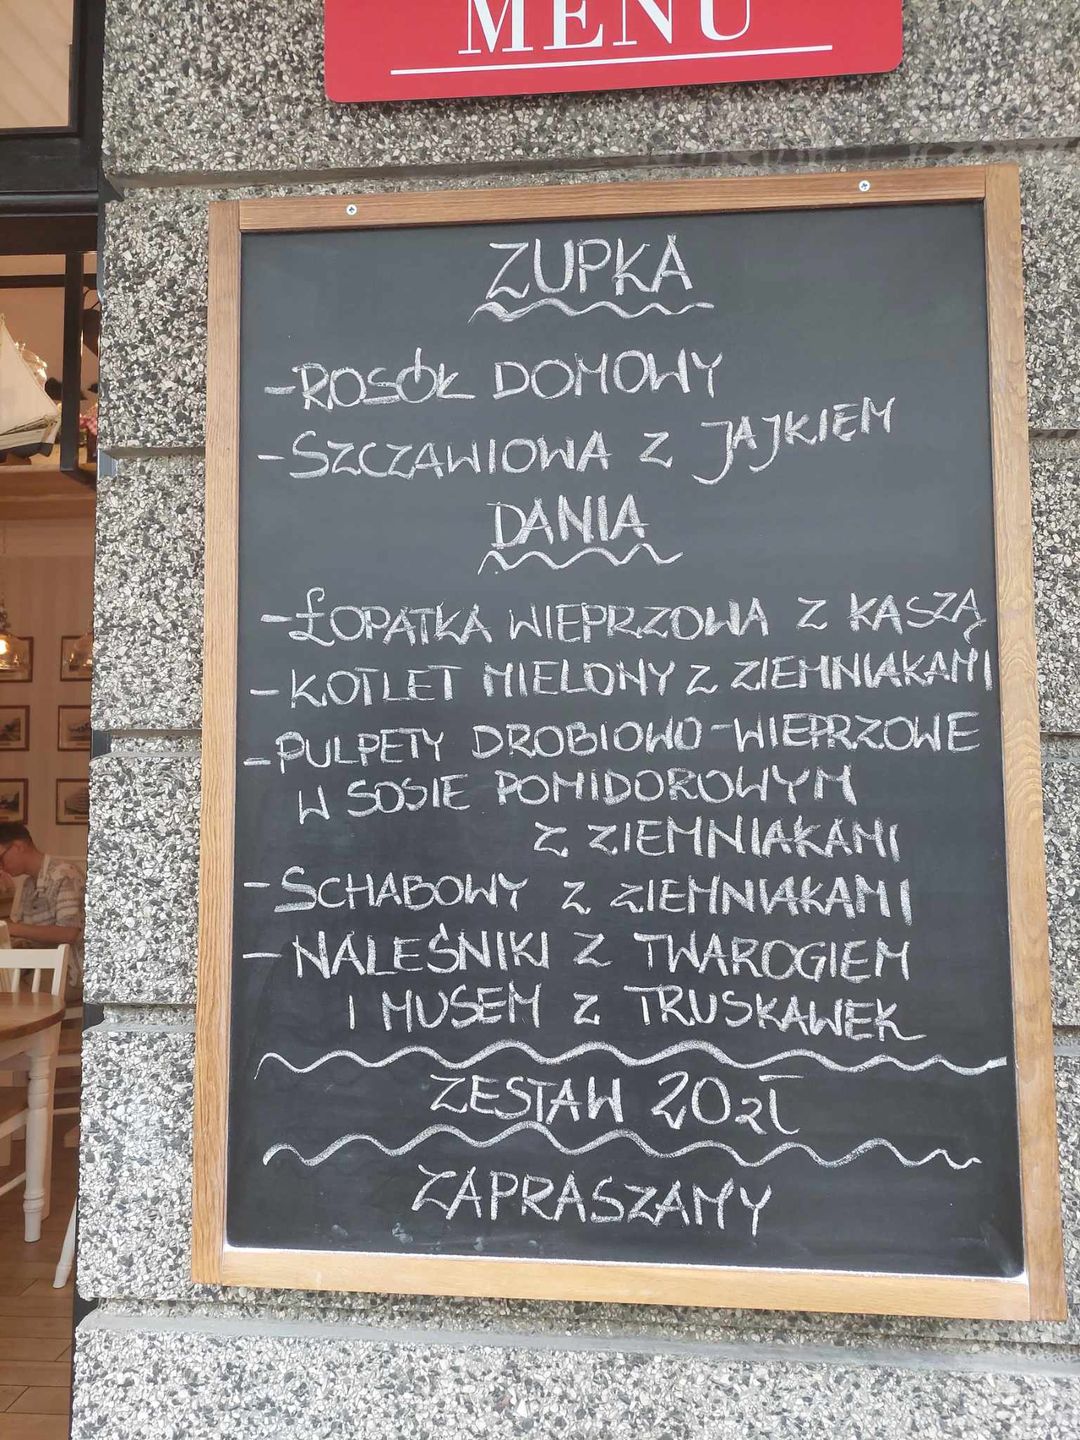 MENU
ZUPKA
- ROSÓŁ DOMOWY
- SZCZAWIOWA Z JAJKIEM
DANIA
- ŁOPATKA WIEPRZOWA Z KASZĄ
- KOTLET MIELONY Z ZIEMNIAKAMI
- PULPETY DROBIOWO-WIEPRZOWE
W SOSIE POMIDOROWYM
Z ZIEMNIAKAMI
- SCHABOWY Z ZIEMNIAKAMI
- NALEŚNIKI Z TWAROGIEM
I MUSEM Z TRUSKAWEK
ZESTAW 20zł
ZAPRASZAMY